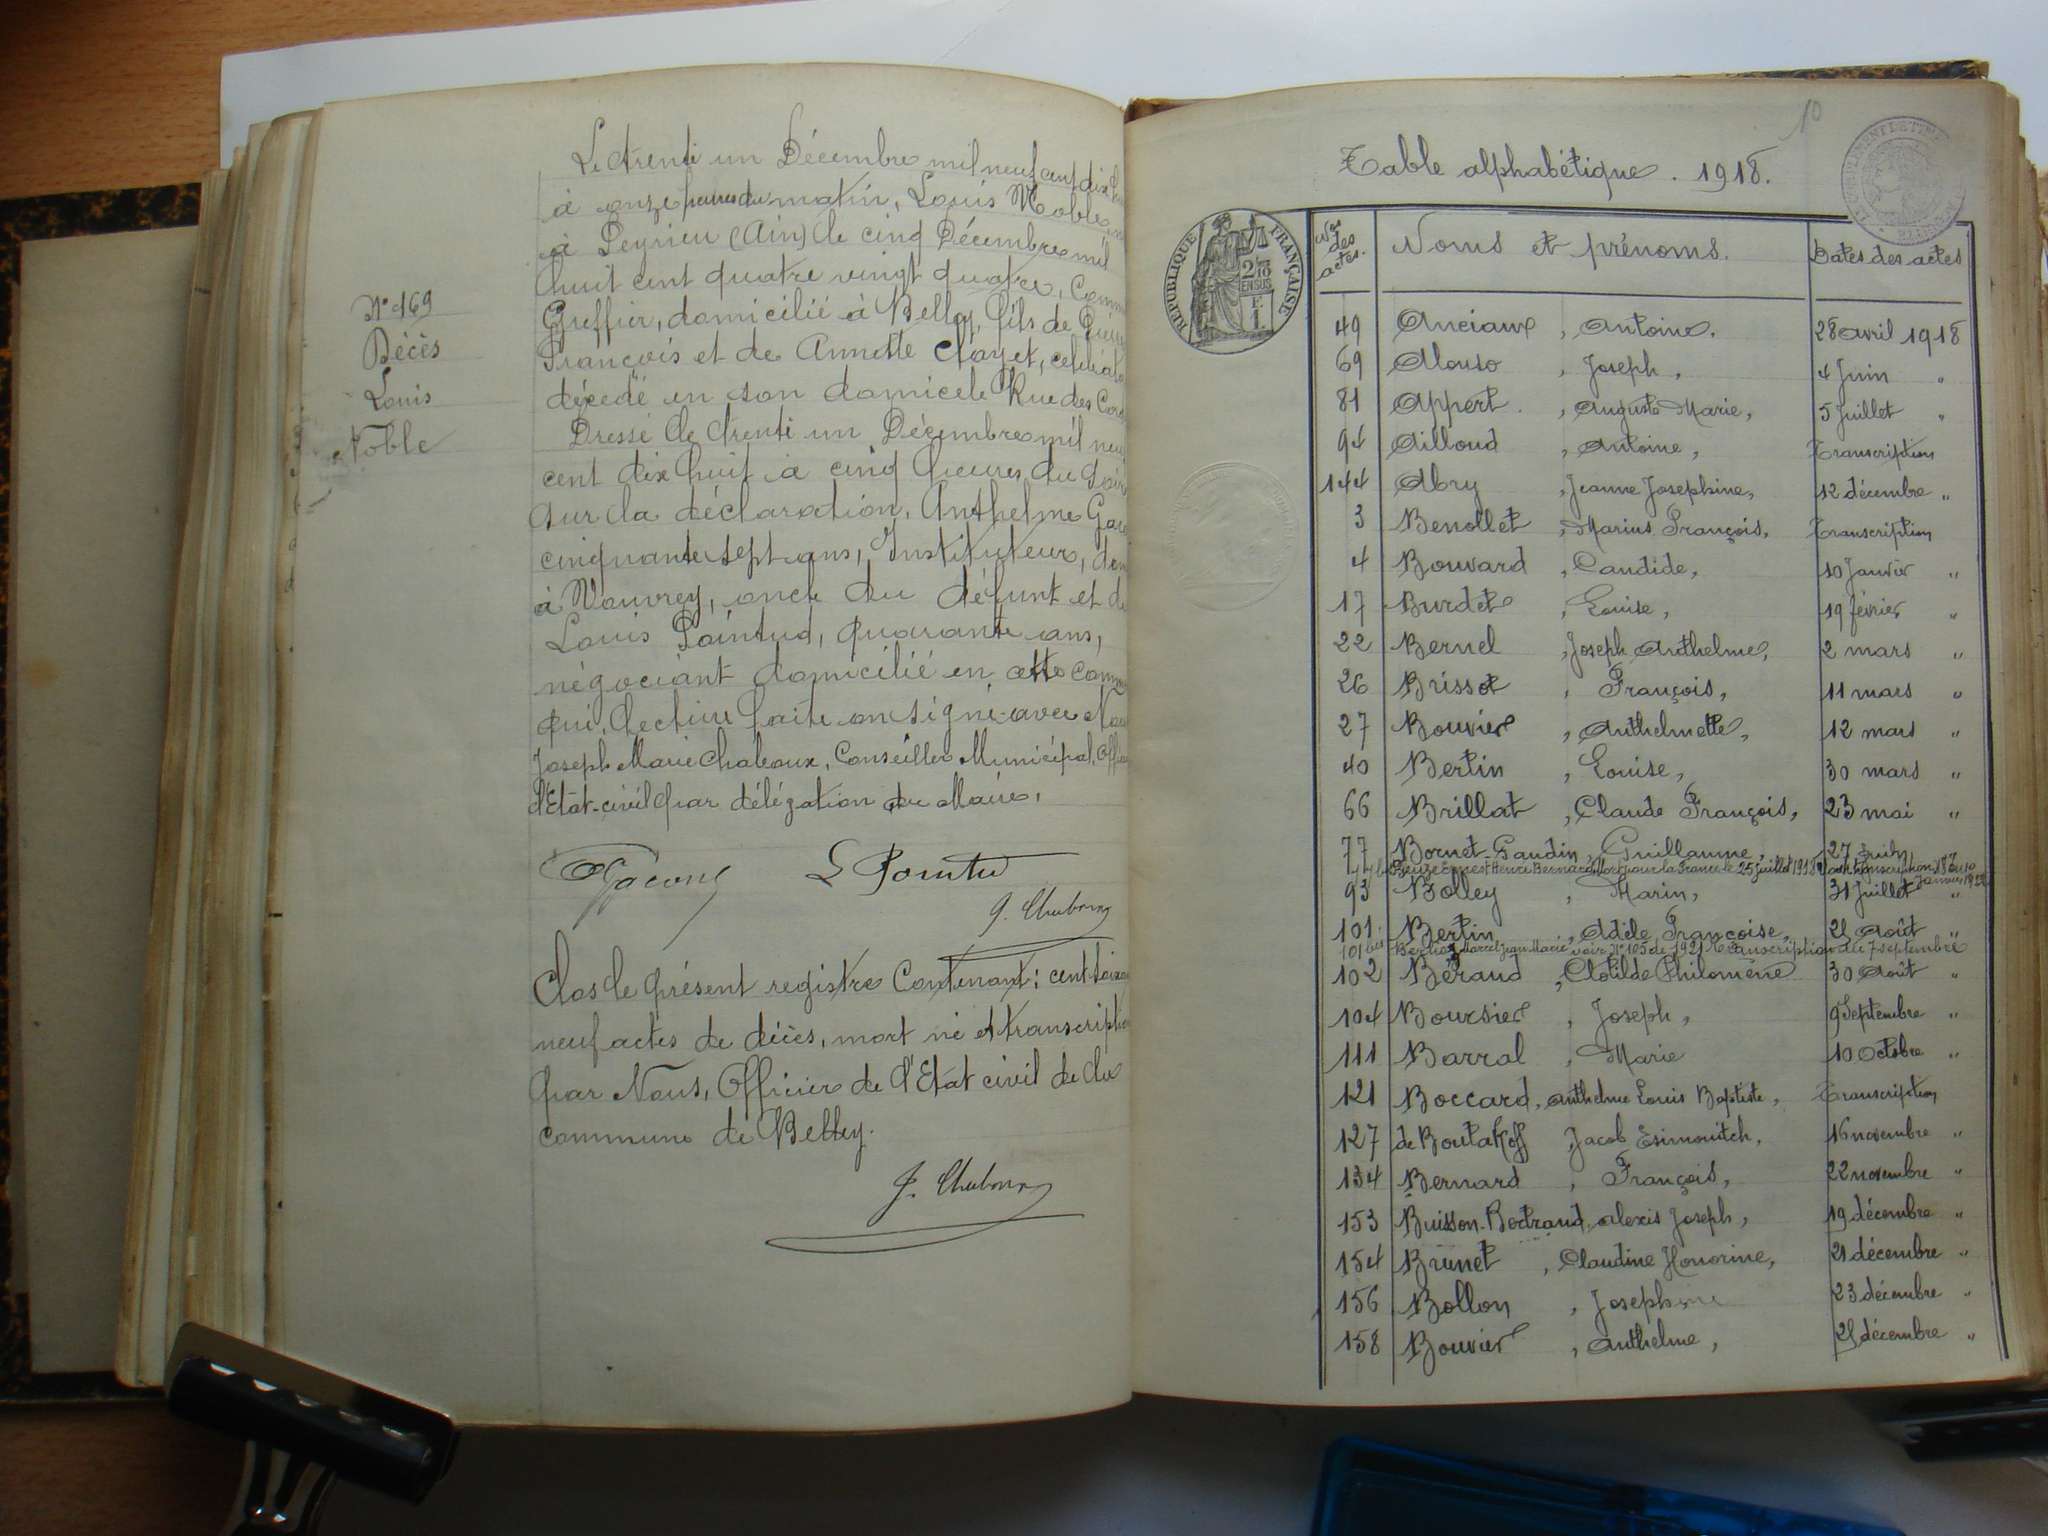 N° 169
Décès
Louis
Noble
Le trente un Décembre mil neuf cent dix
à onze heures du matin, Louis Noble
à Peyrieu (Ain) le cinq Décembre mil
huit cent quatre vingt quatre,
Greffier, domicilié à Belley, fils de
François et de Annette Clayet,
décédé en son domicile Rue des
Dressé le trente un Décembre mil
cent dix huit à cinq heures du soir
sur la déclaration, Anthelme
cinquante sept ans, Instituteur,
à Vouvrey, oncle du défunt et
Louis Pointud, quarante ans,
négociant domicilié en cette
qui, lecture faite ont signé avec
Joseph Marie Chaboux, Conseiller Municipal,
d'Etat-civil par délégation du Maire,
L Pointu
Clos le présent registre Contenant: cent
neuf actes de décès, mort né et
par Nous, Officier de l'Etat civil de la
commune de Belley.
10
Table alphabétique. 1918.
RÉPUBLIQUE FRANÇAISE
2/10 EN SUS
1 F
Nos des actes. Noms et prénoms. Dates des actes
49 Anciaux, Antoine. 28 avril 1918
69 Alonso, Joseph, 4 Juin "
81 Appert, Auguste Marie, 5 Juillet "
94 Ailloud, Antoine, Transcription
144 Abry, Jeanne Josephine, 12 décembre "
3 Benollet, Marius François, Transcription
4 Bouvard, Candide, 10 Janvier "
17 Burdet, Louise, 19 février "
22 Bernel, Joseph Anthelme, 2 mars "
26 Brissot, François, 11 mars "
27 Bouvier, Anthelmette, 12 mars "
40 Bertin, Louise, 30 mars "
66 Brillat, Claude François, 23 mai "
77 Bornet-Gaudin, Guillaume, 27 Juin
Ernest Henri Bernard Mort pour la France le 25 juillet 1918
93 Bolley, Marin, 31 Juillet "
101 Bertin, Adèle Françoise, 21 Août "
101 bis Marcel Jean Marie voir N° 105 de 1921 Transcription du 7 septembre
102 Béraud, Clotilde Philomène 30 Août "
104 Boursier, Joseph, 9 Septembre "
111 Barral, Marie 10 Octobre "
121 Boccard, Anthelme Louis Baptiste, Transcription
127 de Boutakoff, Jacob Esimovitch, 16 novembre "
134 Bernard, François, 22 novembre "
153 Buisson-Bertrand, Alexis Joseph, 19 décembre "
154 Brunet, Claudine Honorine, 21 décembre "
156 Bollon, Josephine 23 décembre "
158 Bouvier, Anthelme, 21 décembre "